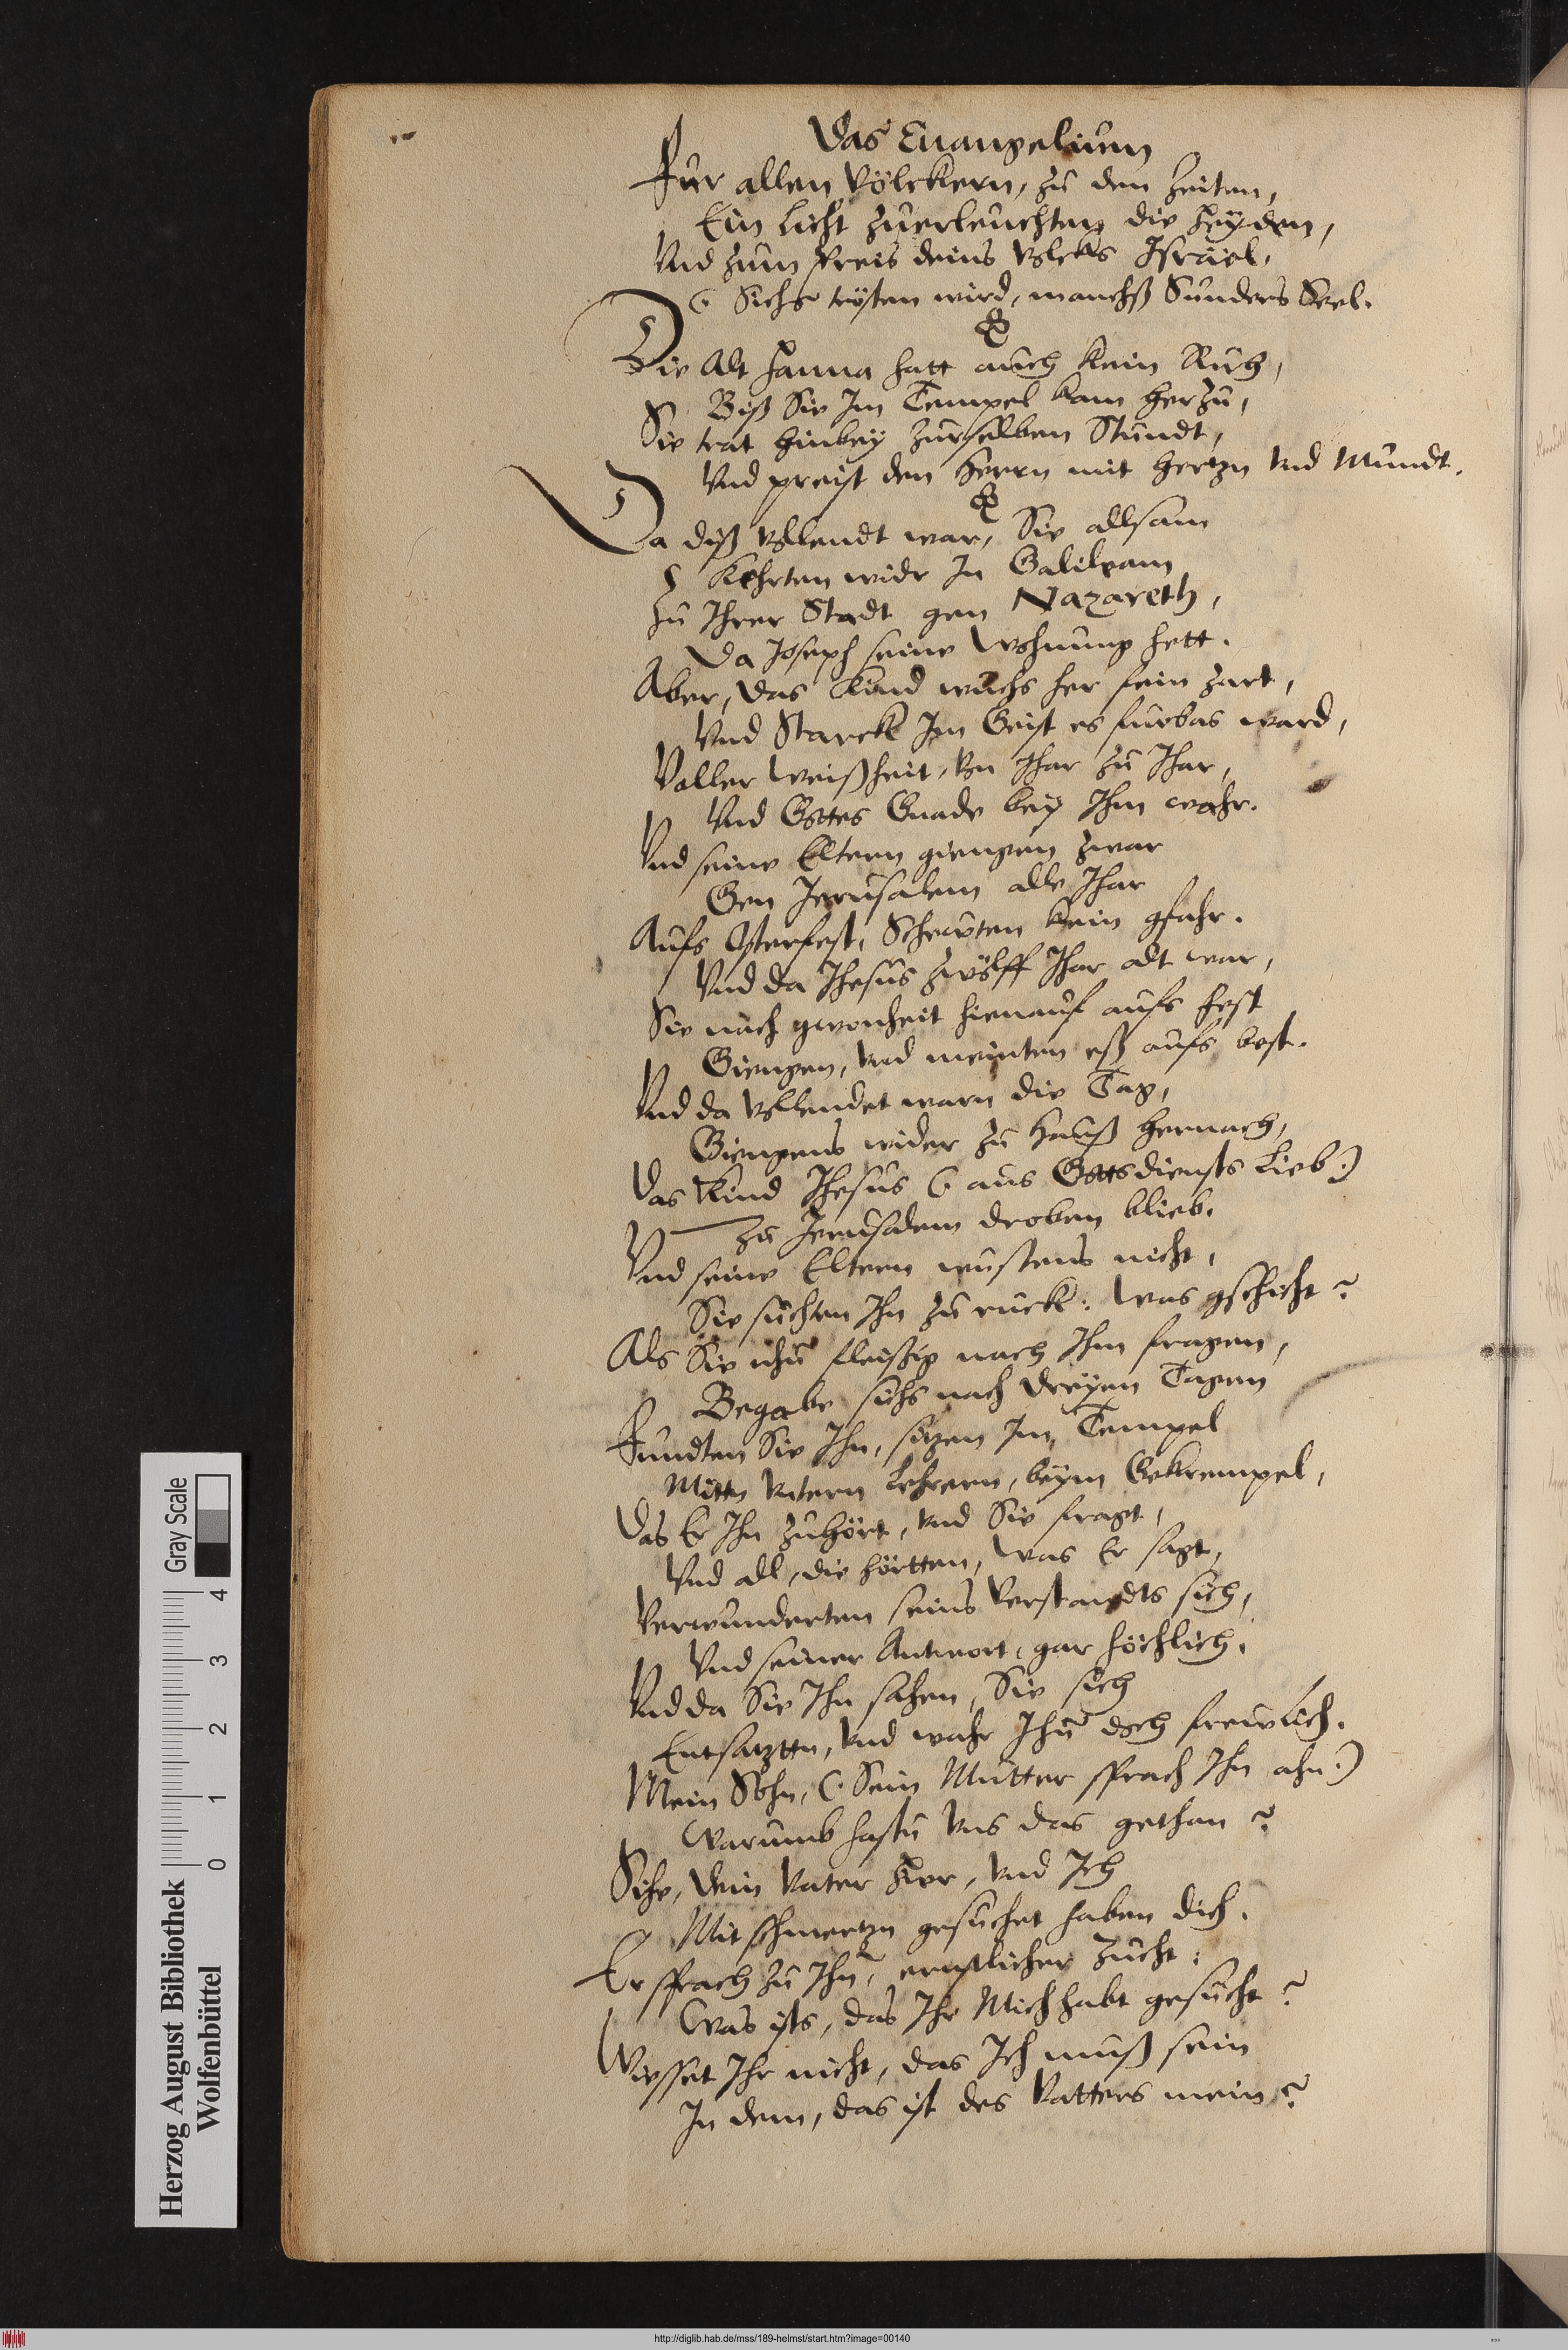 Das Euangelium
Fur allen Völckern, zu den Zeiten,
Ein licht zuerleuchten die Heyden,
Vnd zum Preis deins Volcks Israel,
Sichs trösten wird, manchß Sünders Seel.
Die Alt Hanna hatt auch kein Ruh,
Biß Sie Im Tempel kam herzu,
Sie trat hinbey zurselben Stundt,
Vnd preist den Herrn mit hertzn vnd Mundt.
Da diß vollendt war, Sie allsam
Kehrten widr In Galileam
Zu Ihrer Stadt gen Nazareth,
Da Joseph seine Wohnung hett.
Aber, das Kind wuchs her fein zart,
Vnd Starck Im Geist es furbas ward,
Voller Weißheit, von Ihar zu Ihar,
Vnd Gottes Gnade bey Ihm wahr.
Vnd seine Eltern giengen zwar
Gen Jerusalem alle Ihar
Aufs Osterfest, Scheuten kein gfahr.
Vnd da Ihesus zwölff Ihar alt war,
Sie nach gwonheit hienauf aufs fest
Giengen, vnd meinten eß aufs best.
Vnd da vollendet warn die Tag,
Giengens wider zu Hauß hernach,
Das Kind Ihesus (: aus Gottsdiensts Lieb :)
Zu Jerusalem droben blieb.
Vnd seine Eltern wustens nicht,
Sie suchten Ihn zu ruck: Was gschicht?
Als Sie nhu fleissig nach Ihm fragen,
Begabs sichs nach dreyen Tagen
Fundten Sie Ihn, sitzen Im Tempel
Mittn vntern Lehrern, beym Gekrempel,
Das Er Ihn zuhört, vnd Sie fragt,
Vnd all, die hörtten, Was Er sagt,
Verwunderten seins Verstandts sich,
Vnd seiner Antwort, gar höchlich.
Vnd da Sie Ihn sahen, Sie sich
Entsatzttn, vnd wahr Ihn doch frewlich.
Mein Sohn, (: Sein Mutter sprach Ihn ahn :)
Warumb hastu vns das gethan?
Sihe, dein Vater hier, vnd Ich
Mit schmertzn gesuchet haben dich.
Er sprach zu Ihn, ernstlicher Zucht:
Was ists, das Ihr Mich habt gesucht?
Wisset Ihr nicht, das Ich muß sein
In dem, das ist des Vatters mein?
Herzog August Bibliothek
Wolfenbüttel
0 1 2 3 4
Gray Scale
http://diglib.hab.de/mss/189-helmst/start.htm?image=00140